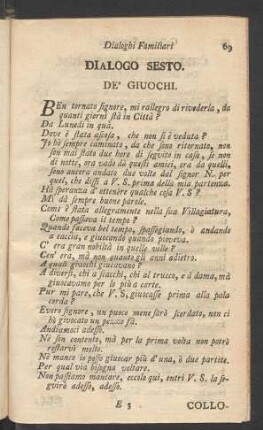 Dialoghi Familiari 69
DIALOGO SESTO.
DE' GIUOCHI.
BEn tornato signore, mi rallegro di riverderla, da
quanti giorni stà in Città?
Da Lunedì in quà.
Dove è stata ascosa, che non si è veduta?
Io hò sempre caminato, da che sono ritornato, non
son mai stato due hore di seguito in casa, se non
di notte, ora vado dà questi amici, ora da quelli,
sono ancora andato due volte dal signor N. per
quel, che dissi a V. S. prima della mia partenza.
Hà speranza d'ottenere qualche cosa V. S?
Mi dà sempre buone parole.
Come è stato allegramente nella sua Villagiatura,
Come passava il tempo?
Quando faceva bel tempo, spasseggiando, ò andando
a caccia, e giuocando quando pioveva.
C' era gran nobiltà in quelle ville?
Cen' era, mà non quanto gli anni adietro.
A quali giuochi giuocavano?
A diversi, chi a scacchi, chi al trucco, e à dama, mà
giuocavamo per lo più a carte.
Pur mi pare, che V. S, giuocasse prima alla pala
corda?
E vero signore, un puoco mene sarò scordato, non ci
hò giuocato un pezzo fà.
Andiamoci adesso.
Nè sìn contento, mà per la prima volta non potrò
restarvi molto.
Nè manco io posso giuocar più d'una, ò due partite.
Per qual via bisogna voltare.
Non possiamo mancare, eccola qui, entri V. S. la se-
guirò adesso, adesso.
E 3 COLLO-